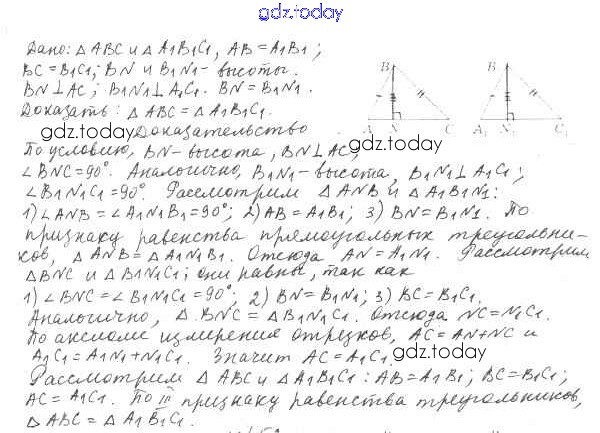 gdz.today
Дано: △ABC и △A1B1C1, AB = A1B1;
BC = B1C1; BN и B1N1 - высоты.
BN ⊥ AC; B1N1 ⊥ A1C1. BN = B1N1.
Доказать: △ABC = △A1B1C1.
B B1
A N C A1 N1 C1
gdz.today Доказательство
По условию, BN - высота, BN ⊥ AC; gdz.today
∠BNC = 90°. Аналогично, B1N1 - высота, B1N1 ⊥ A1C1;
∠B1N1C1 = 90°. Рассмотрим △ANB и △A1B1N1:
1) ∠ANB = ∠A1N1B1 = 90°; 2) AB = A1B1; 3) BN = B1N1. По
признаку равенства прямоугольных треугольни-
ков, △ANB = △A1N1B1. Отсюда AN = A1N1. Рассмотрим
△BNC и △B1N1C1; они равны, так как
1) ∠BNC = ∠B1N1C1 = 90°; 2) BN = B1N1; 3) BC = B1C1.
Аналогично, △BNC = △B1N1C1. Отсюда NC = N1C1.
По аксиоме измерения отрезков, AC = AN + NC и
A1C1 = A1N1 + N1C1. Значит AC = A1C1. gdz.today
Рассмотрим △ABC и △A1B1C1: AB = A1B1; BC = B1C1;
AC = A1C1. По III признаку равенства треугольников,
△ABC = △A1B1C1.
gdz.today